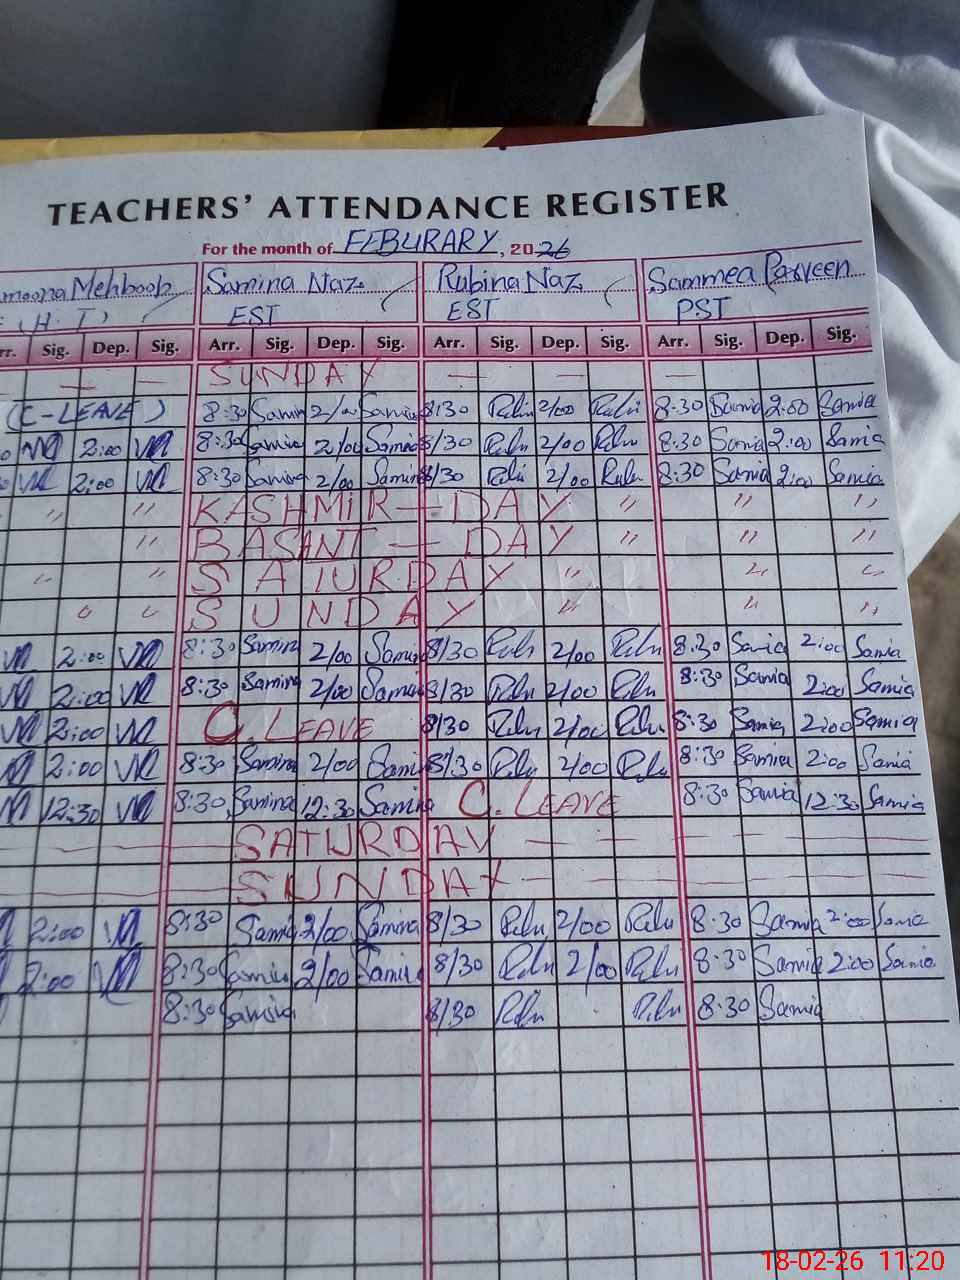 TEACHERS' ATTENDANCE REGISTER
For the month of FEBURARY, 2026
Mehboob Samina Naz Rubina Naz Sammea Parveen
(H.T) EST EST PST
rr. Sig. Dep. Sig. Arr. Sig. Dep. Sig. Arr. Sig. Dep. Sig. Arr. Sig. Dep. Sig.
— — SUNDAY — — —
(C-LEAVE) 8:30 Samina 2/00 Samina 8/30 2/00 8:30 Samia 2:00 Samia
2:00 8:30 Samina 2/00 Samina 8/30 2/00 8:30 Samia 2:00 Samia
2:00 8:30 Samina 2/00 Samina 8/30 2/00 8:30 Samia 2:00 Samia
" " KASHMIR — DAY " " "
" BASANT — DAY " " "
" " SATURDAY " " "
" " SUNDAY " " "
2:00 8:30 Samina 2/00 Samina 8/30 2/00 8:30 Samia 2:00 Samia
2:00 8:30 Samina 2/00 Samina 8/30 2/00 8:30 Samia 2:00 Samia
2:00 C. LEAVE 8/30 2/00 8:30 Samia 2:00 Samia
2:00 8:30 Samina 2/00 Samina 8/30 2/00 8:30 Samia 2:00 Samia
12:30 8:30 Samina 12:30 Samina C. LEAVE 8:30 Samia 12:30 Samia
SATURDAY
SUNDAY
2:00 8:30 Samina 2/00 Samina 8/30 2/00 8:30 Samia 2:00 Samia
2:00 8:30 Samina 2/00 Samina 8/30 2/00 8:30 Samia 2:00 Samia
8:30 Samina 8/30 8:30 Samia
18-02-26 11:20